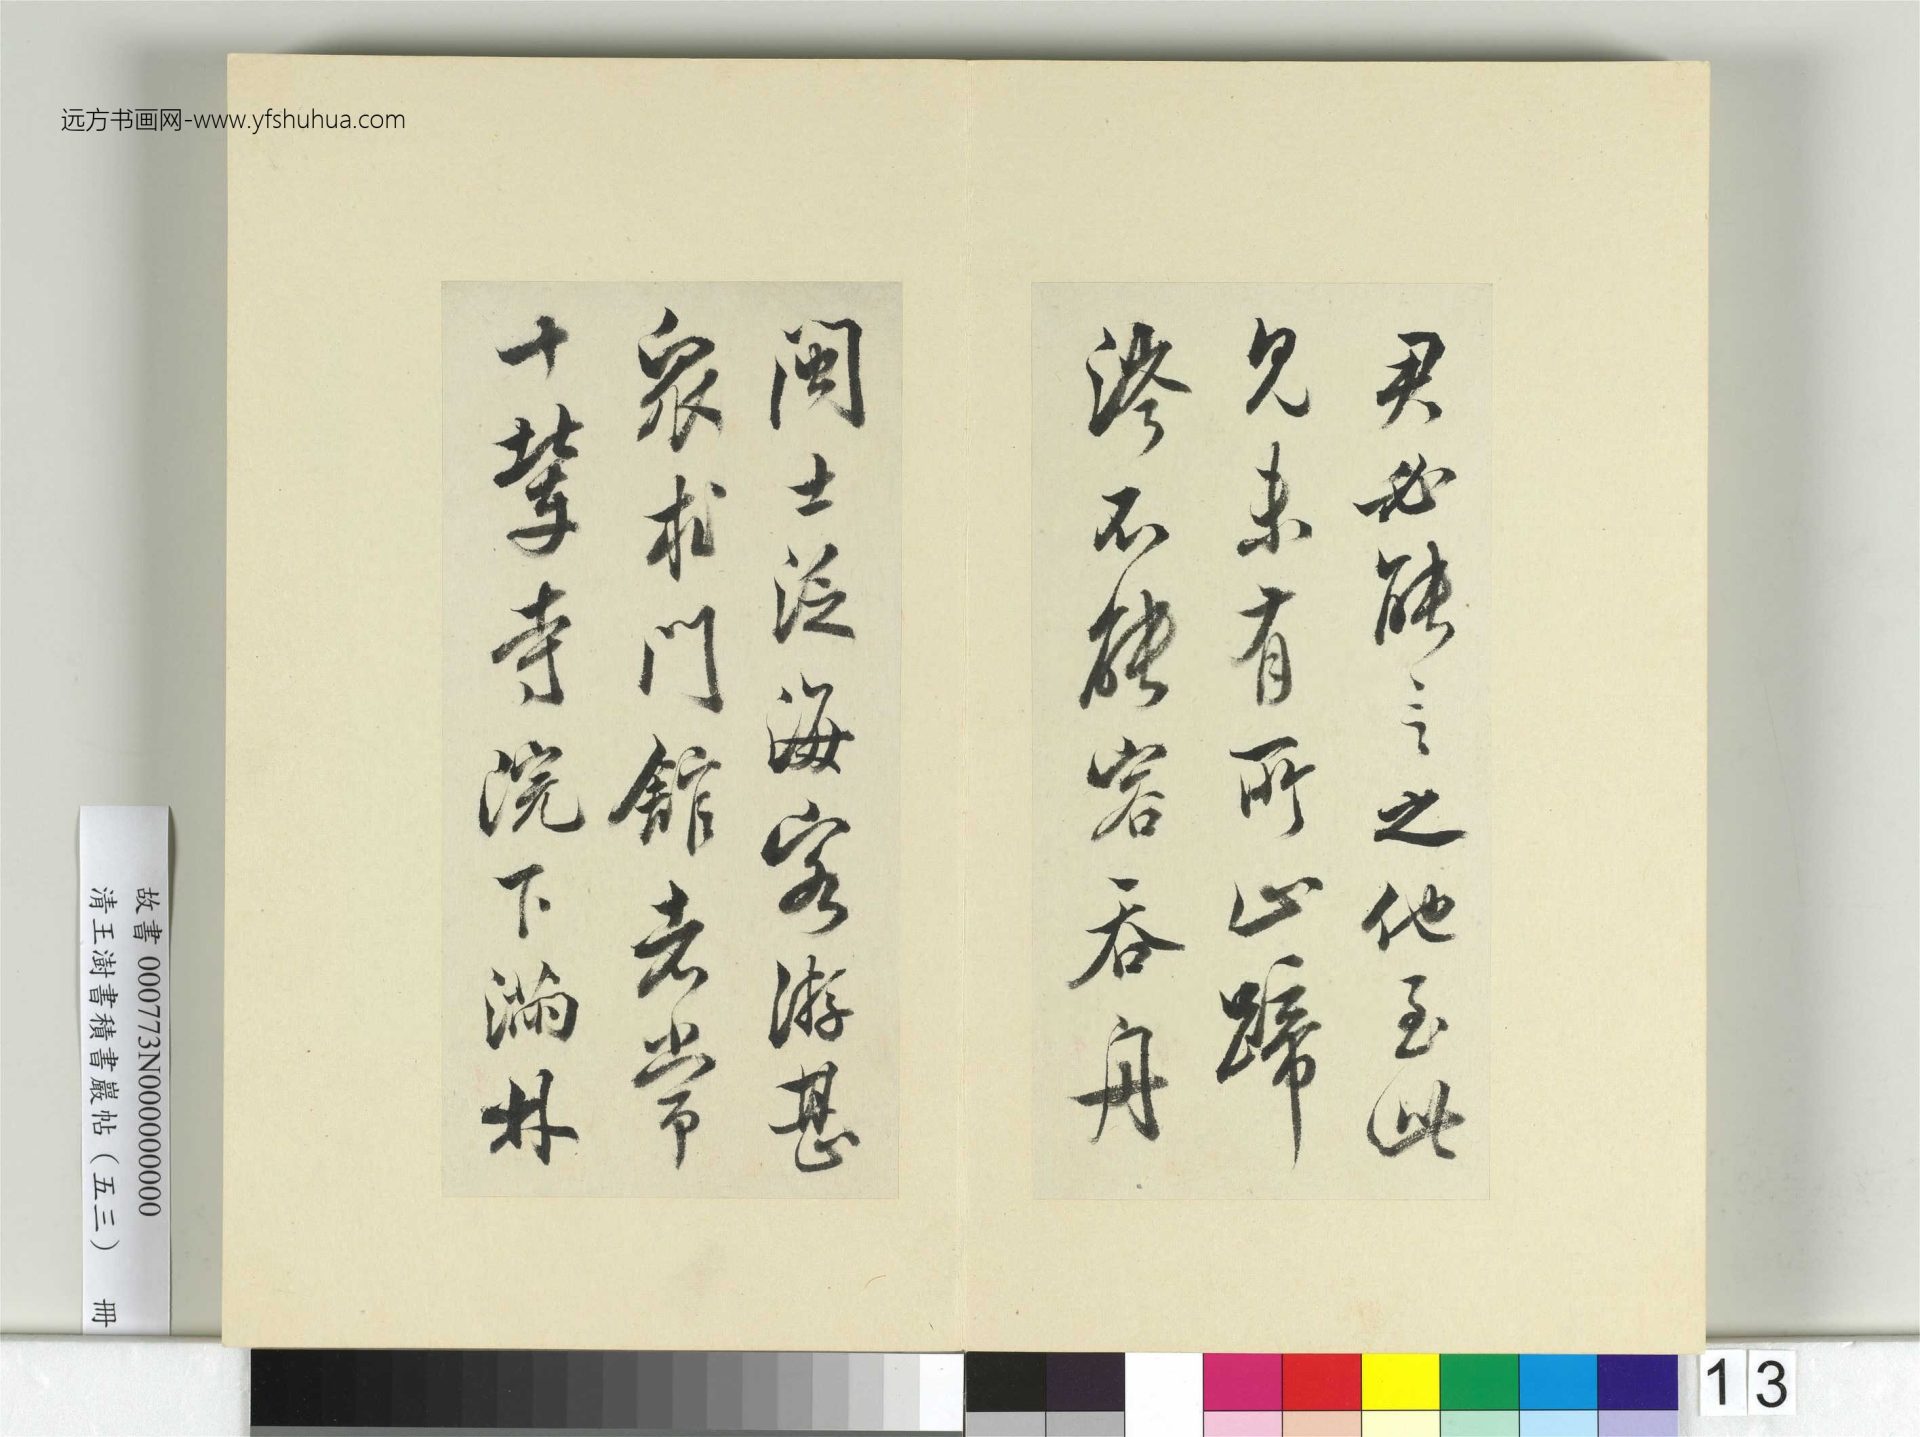 远方书画网-www.yfshuhua.com
君必能言之他至此
見未有所止蹄
涔不能容吞舟
閩士泛海客游甚
衆於門館者常
十輩寺浣下滿林
故書 000773N000000000
清王澍書積書巖帖（五三） 冊
13